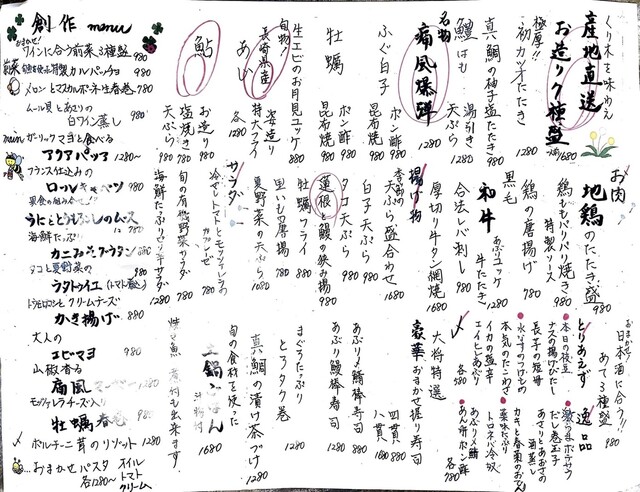 創作 menu
おまかせ!
ワインに合う前菜3種盛 980
前菜
特製カルパッチョ 980
メロンとマスカルポーネ生春巻 780
ムール貝とあさりの
白ワイン蒸し 980
main ガーリックマヨと食べる
アクアパッツァ 1280〜
フランス仕込みの
ロールキャベツ 980
うにととうもろこしのムース 780
海鮮たっぷり
カニみそグラタン 880
タコと夏野菜の
ラタトゥイユ(トマト煮込) 780
トウモロコシとクリームチーズ
かき揚げ 880
大人の
エビマヨ 980
山椒香る
痛風 1280
モッツァレラチーズ入り
牡蠣春巻 980
ポルチーニ茸のリゾット 1280
おまかせパスタ
各1280〜
オイル
トマト
クリーム
くり木を味わえ
産地直送
お造り7種盛 1680
極厚!!
初カツオたたき 1280
真鯛の柚子塩たたき 980
鱧 湯引き 1280
はも 天ぷら 1280
名物
痛風爆弾
ふぐ白子 ポン酢 980
昆布焼 980
牡蠣 ポン酢 880
昆布焼 880
生エビのお月見ユッケ 880
旬物!
長崎県産
あじ
姿造り
特大フライ
各1280
鮎
お造り 780
塩焼き 780
天ぷら 780
お肉
地鶏のたたき盛 980
鶏ももパリパリ焼き
特製ソース 980
鶏の唐揚 780
黒毛
和牛
ユッケ 980
牛たたき 1280
合法レバ刺し 980
厚切り牛タン網焼 1680
揚げ物
天ぷら盛合わせ 1680
白子天ぷら 980
タコ天ぷら 980
蓮根と鰻の挟み揚 980
牡蠣フライ 980
里いもの唐揚 780
夏野菜の天ぷら 1680
サラダ
冷やしトマトとモッツァレラの
カプレーゼ 780
旬の有機野菜サラダ 780
海鮮たっぷりピザ サラダ 1280
おまかせ!
日本酒に合う!
あて3種盛 980
とりあえず 逸品
本日の枝豆
ナスの揚げびたし
長芋の短冊
水いすのつけもの
本気のたこわさ
イカの塩辛
エイヒレあぶり
各580
激うまポテサラ
だし巻玉子
あさりとあおさの
酒蒸し
カキと春菊のお浸し
薬味たっぷり
トロネギ冷奴
あぶりメ鯖
あん肝ポン酢
各780
大将特選
豪華
おまかせ握り寿司
四貫 880
八貫 1680
あぶりメ鯖棒寿司 880
あぶり鰻棒寿司 1280
まぐろたっぷり
とろタク巻 1280
真鯛の漬け茶づけ 1280
旬の食材を使った
土鍋ごはん 1680
焼き魚 煮付も出来ます